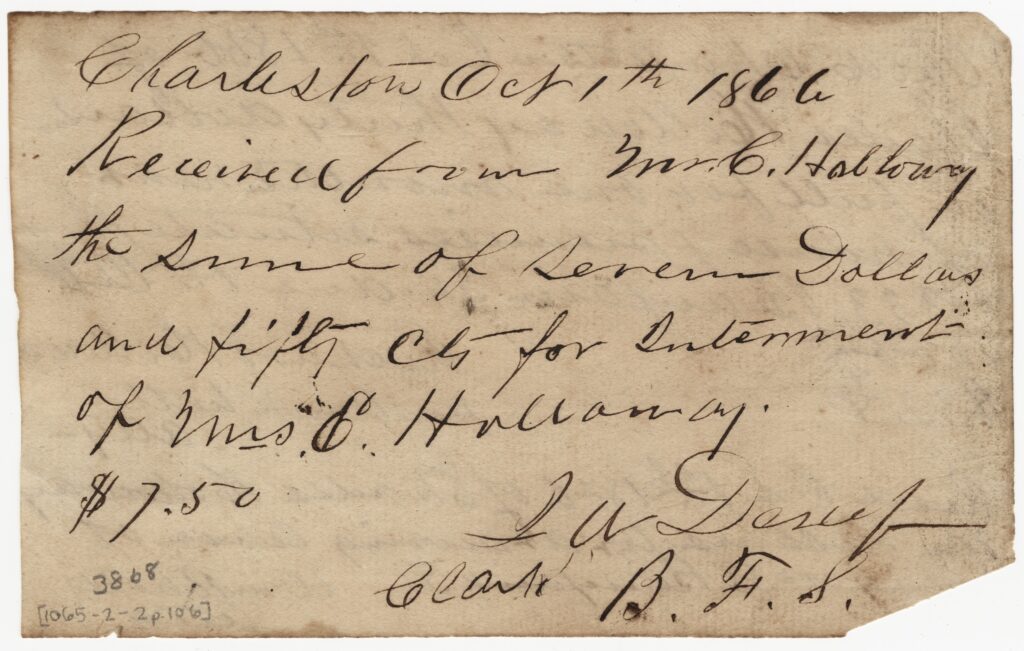 Charleston Oct 1th 1866
Received from Mr. C. Holloway
the sume of Seven Dollars
and fifty cts for Interment
of Mrs. E. Hollaway.
$7.50
Clark B. F. S.
3868
[1065-2-2p.106]